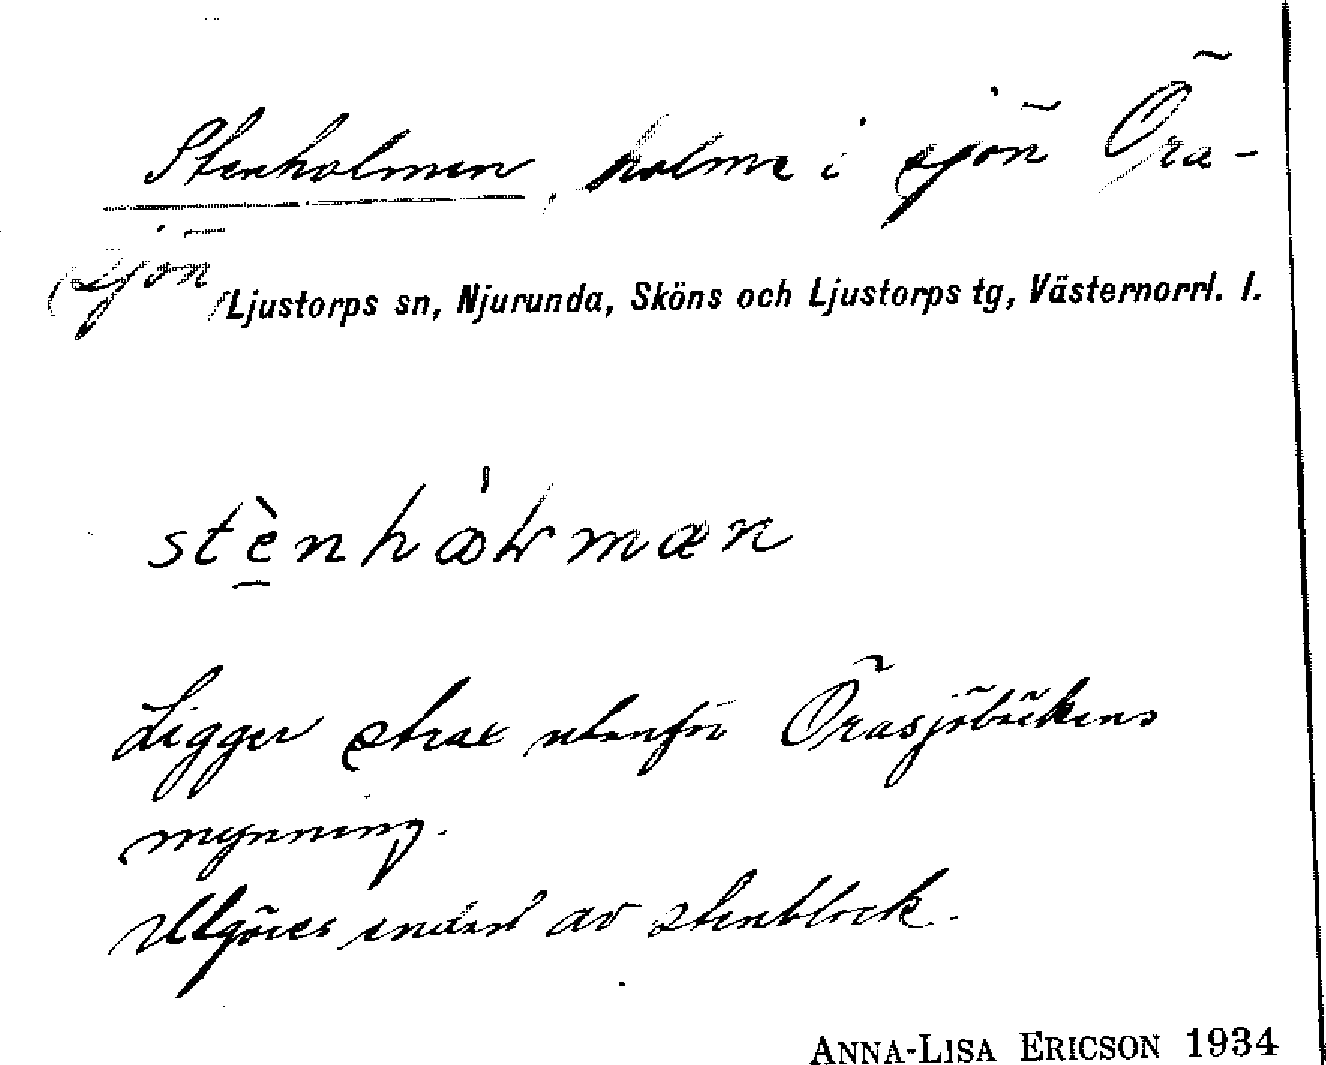 Stenholmen, holme i sjön Öra-
sjön
Ljustorps sn, Njurunda, Sköns och Ljustorps tg, Västernorrl. l.
Ligger strax utanför Örasjöbäckens
mynning.
Utgöres endast av stenblock.
ANNA-LISA ERICSON 1934